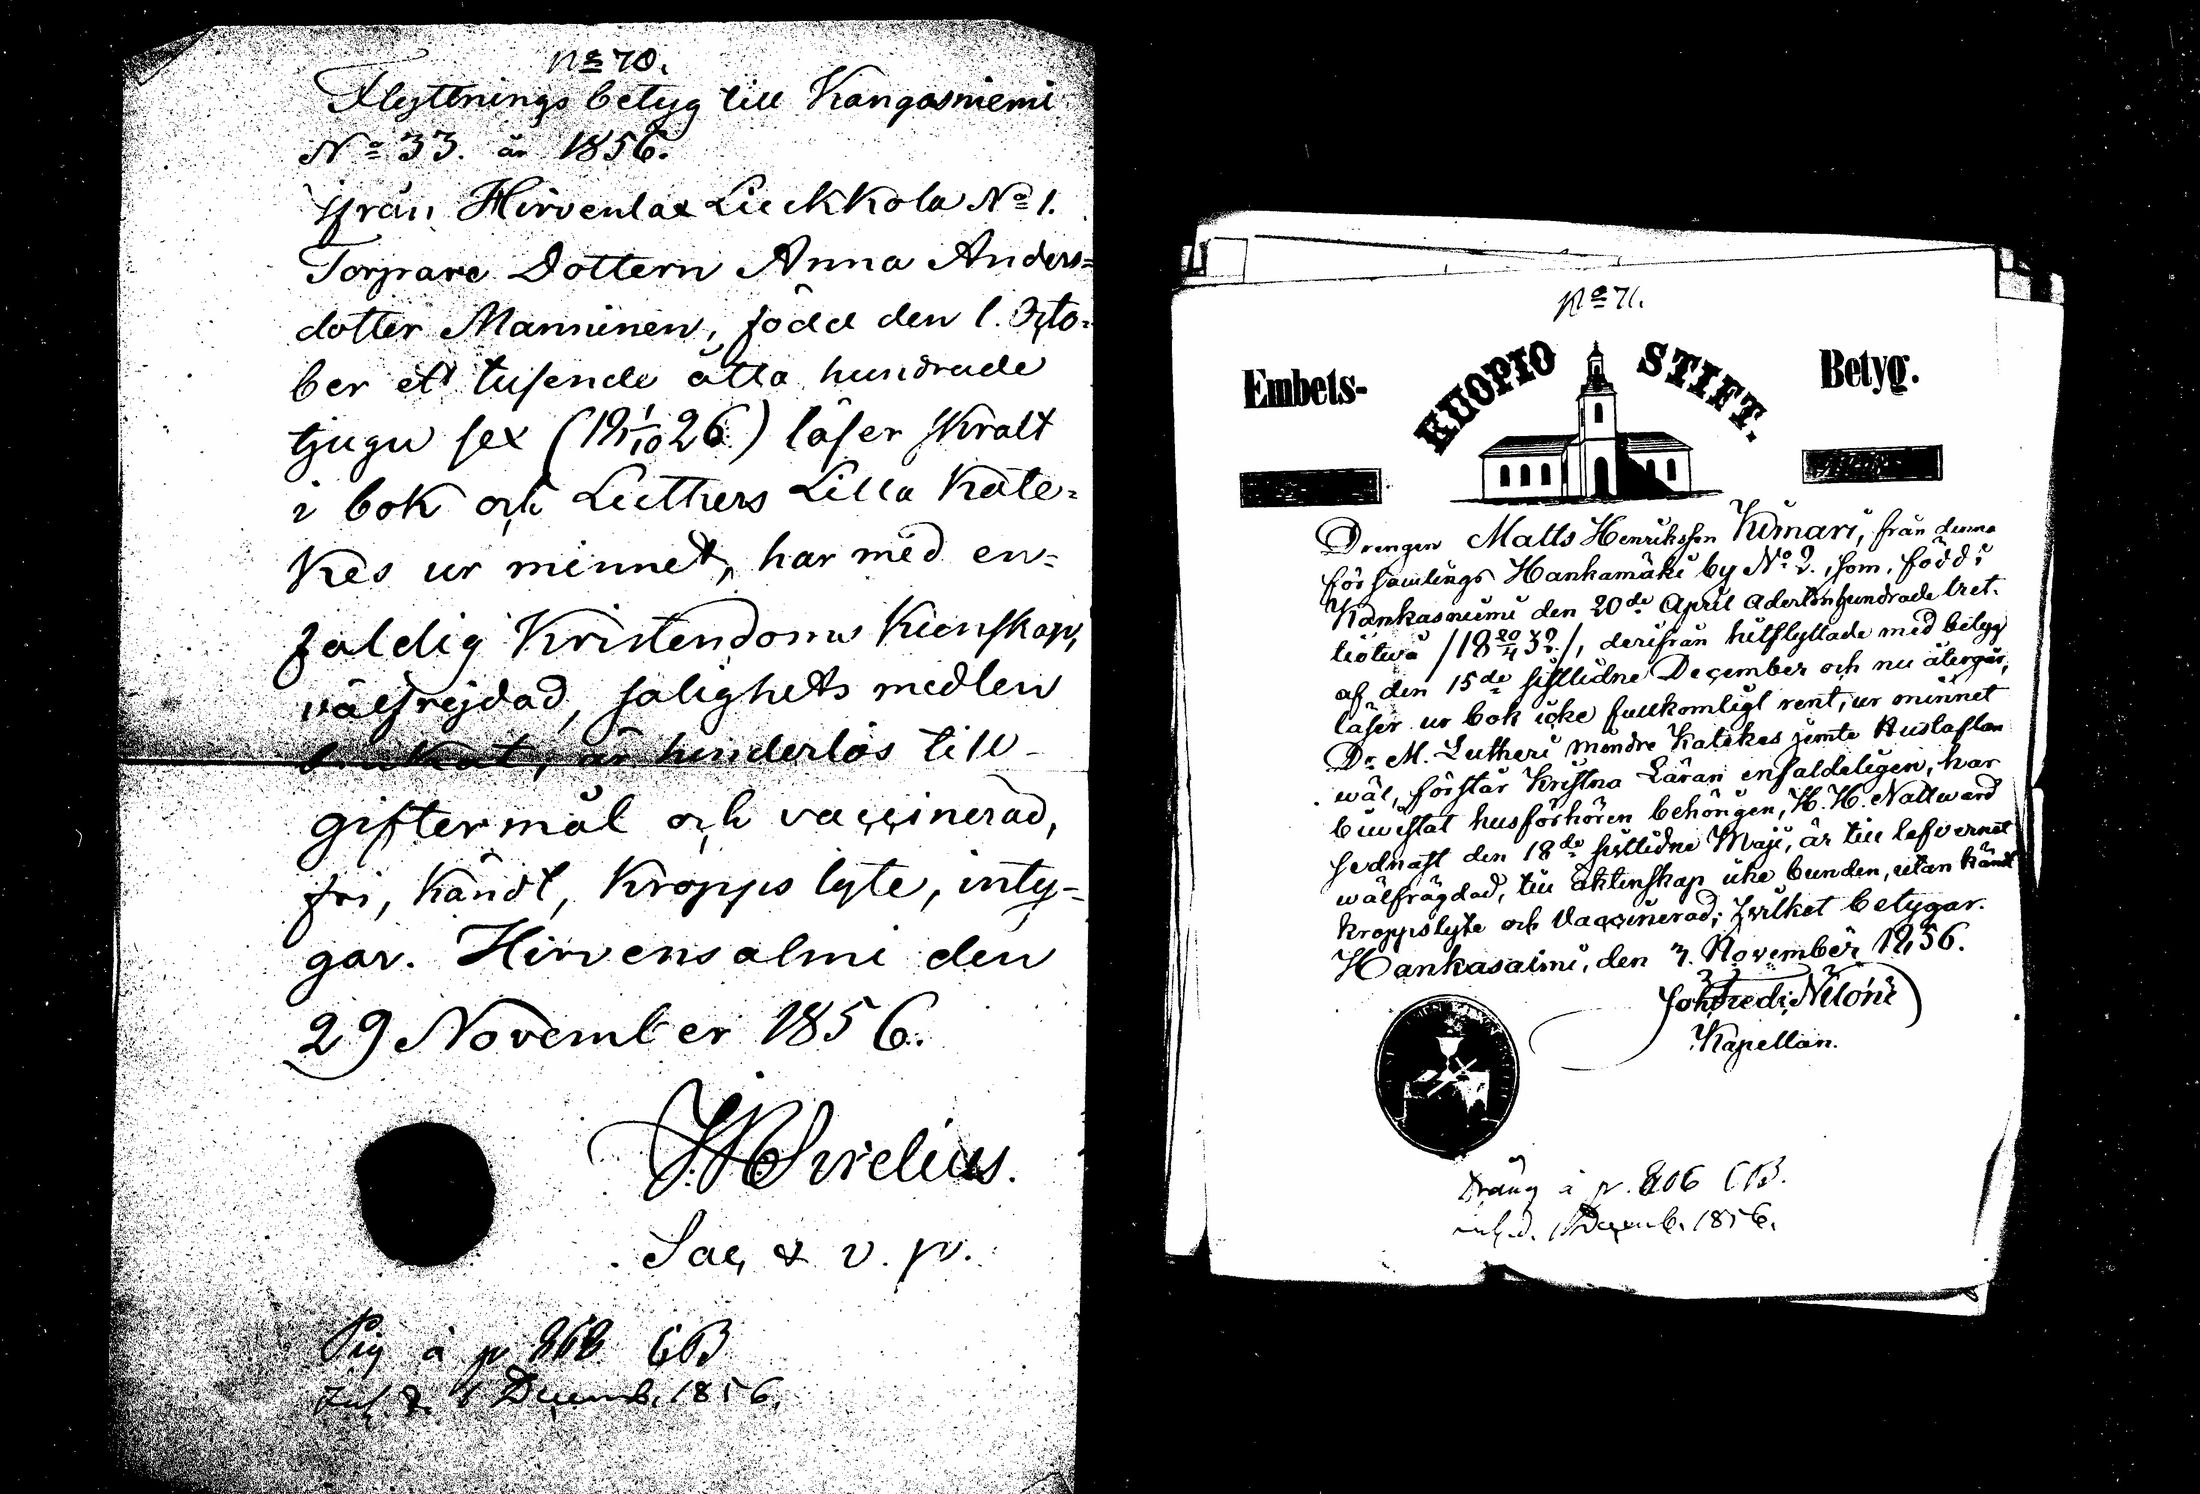 No 70.
Flyttnings betyg till Kangasniemi
No 33. år 1856.
Från Hirvenlax Lieckkola No 1.
Torpare Dottern Anna Anders=
dotter Manninen, född den 1. Octo=
ber ett tusende åtta hundrade
tjugu sex (18 1/10 26) läser skralt
i bok och Luthers Lilla Kate=
kes ur minnet, har med en=
faldig Kristendoms Kienskap,
välfrejdad, salighets medlen
brukat, är hinderlös till
giftermål och vaccinerad,
fri, Kändt, Kropps lyte, inty=
gar. Hirvensalmi den
29 November 1856.
Sac, & v. p.
Pig å p 868 CB
1 Decemb. 1856.
No 71.
Embets- KUOPIO STIFT. Betyg.
Drengen Matts Henriksson Kinnari, från denna
församlings Hankamäki by No 2. som, född i
Kankasniemi den 20de April Adertonhundrade tret-
tiotwå /18 20/4 32./, derifrån hitflyttade med betyg
af den 15de sistlidne December och nu återgår,
läser ur bok icke fullkomligt rent, ur minnet
Dr M. Lutheri mindre Katekes jemte Hustaflan
wäl, förstår Kristna Läran enfaldeligen, har
biwistat husförhören behörigen, H. H. Nattward
sednast den 18de sistlidne Maji, är till lefvernet
wälfrägdad, till äktenskap icke bunden, utan kändt
kroppslyte och Vaccinerad; hvilket betygar.
Hankasalmi, den 3. November 1856.
Joh. Fredr. Niloni
Kapellan.
Dräng å p. 806 CB.
inf. d. 1 Decemb. 1856.